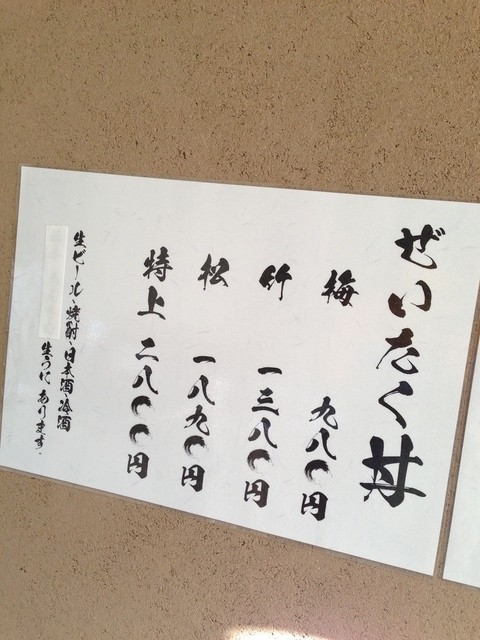 ぜいたく丼
梅 九八〇円
竹 一三八〇円
松 一八九〇円
特上 二八〇〇円
生ビール・焼酎・日本酒・冷酒
生うに あります。